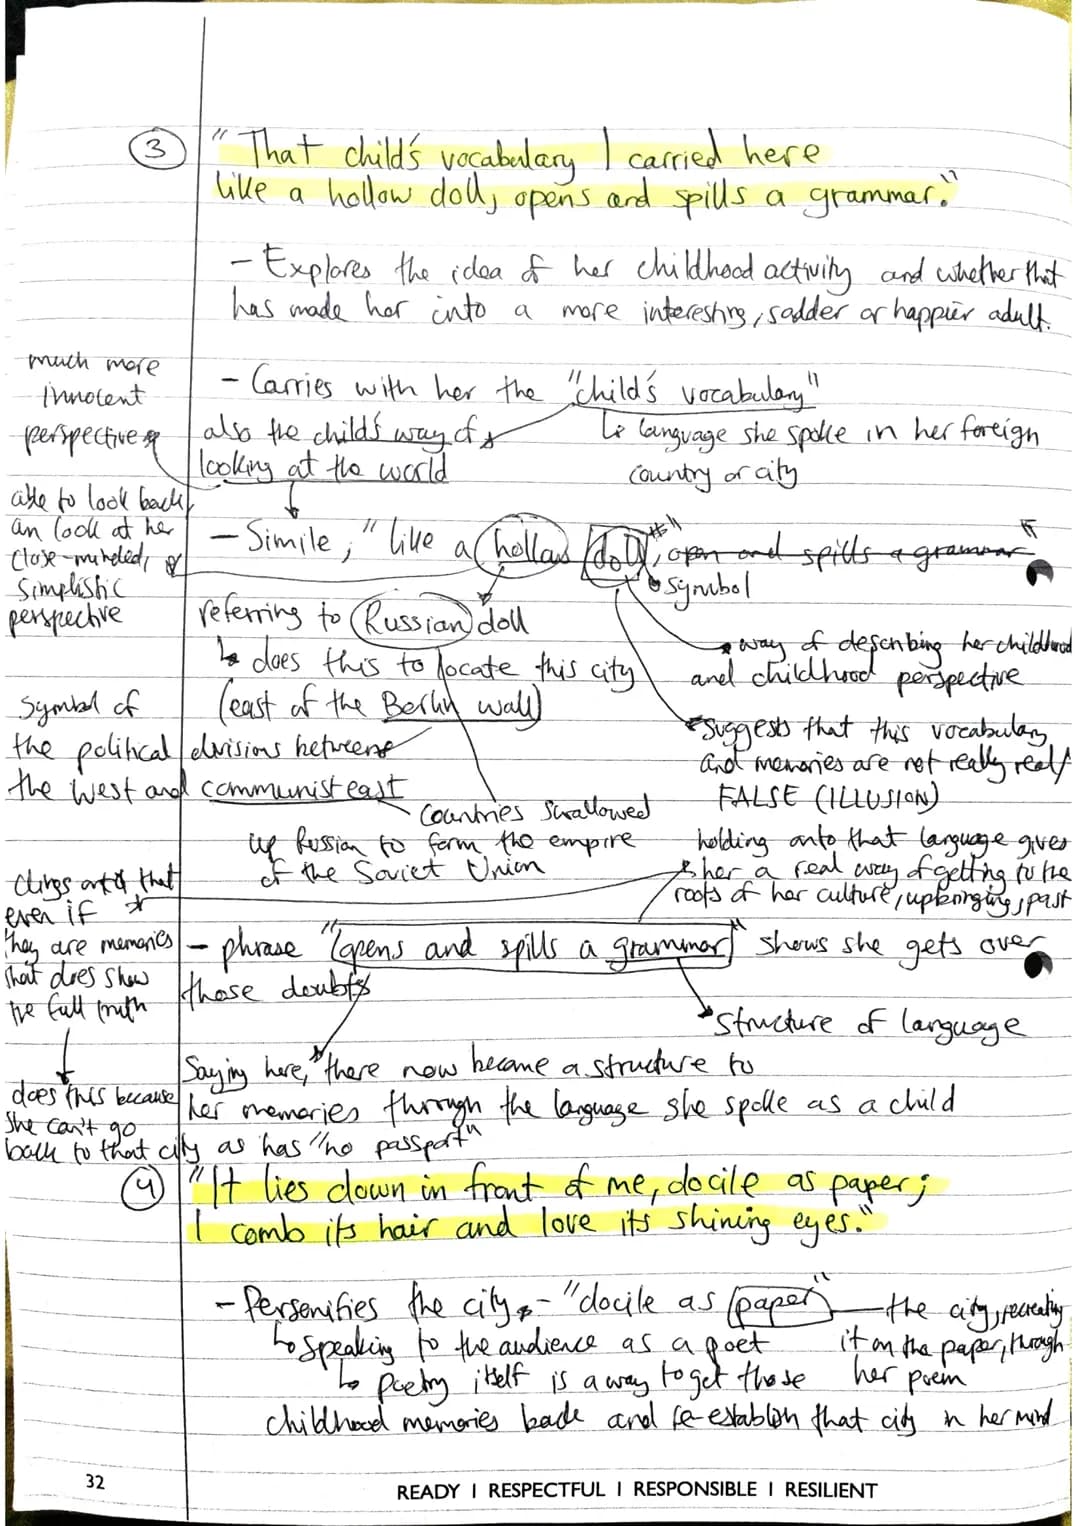 3
"That child's vocabulary I carried here
like a hollow doll, opens and spills a grammar."
- Explores the idea of her childhood activity and whether that
has made her into a more interesting, sadder or happier adult.
much more
innocent
perspective
- Carries with her the "child's vocabulary"
also the child's way of
looking at the world
↳ language she spoke in her foreign
country or city
able to look back
an look at her
close-minded,
simplistic
perspective
- Simile, "like a hollow doll", open and spills a grammar"
symbol
referring to Russian doll
↳ does this to locate this city
(east of the Berlin wall)
way of describing her childhood
and childhood perspective
Symbol of
the political divisions between
the West and communist east
suggests that this vocabulary
and memories are not really real/
FALSE (ILLUSION)
Countries swallowed
up Russian to form the empire
of the Soviet Union
holding onto that language gives
her a real way of getting to the
roots of her culture, upbringing, past
clings onto that
even if
they are memories
that does show
the full truth
- phrase "opens and spills a grammar" shows she gets over
those doubts
structure of language
Saying here, "there now became a structure to
her memories through the language she spoke as a child
does this because
she can't go
back to that city as has "no passport"
4
"It lies down in front of me, docile as paper;
I comb its hair and love its shining eyes."
- Personifies the city - "docile as paper"
the city, recreating
it on the paper, through
her poem
↳ speaking to the audience as a poet
↳ Poetry itself is a way to get those
childhood memories back and re-establish that city in her mind
32
READY I RESPECTFUL I RESPONSIBLE I RESILIENT